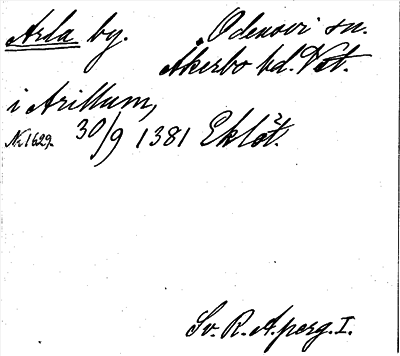 Arla by. Odensvi sn.
Åkerbo hd. Vstm.
i Arillum,
Nr 1629. 30/9 1381 Eklöt.
Sv. R. A. perg. I.